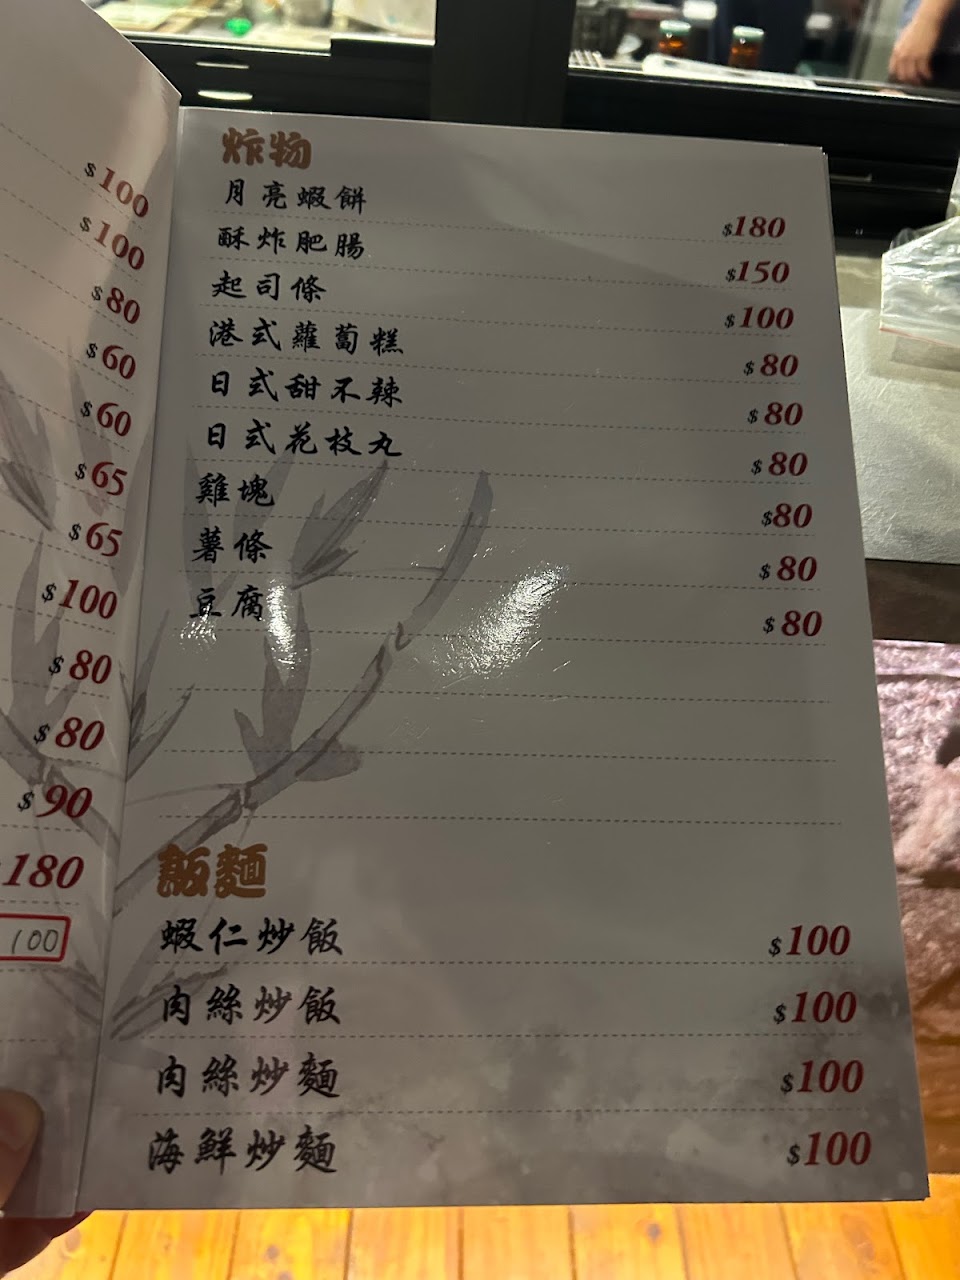 $100
$100
$80
$60
$60
$65
$65
$100
$80
$80
$90
180
100
炸物
月亮蝦餅 $180
酥炸肥腸 $150
起司條 $100
港式蘿蔔糕 $80
日式甜不辣 $80
日式花枝丸 $80
雞塊 $80
薯條 $80
豆腐 $80
飯麵
蝦仁炒飯 $100
肉絲炒飯 $100
肉絲炒麵 $100
海鮮炒麵 $100